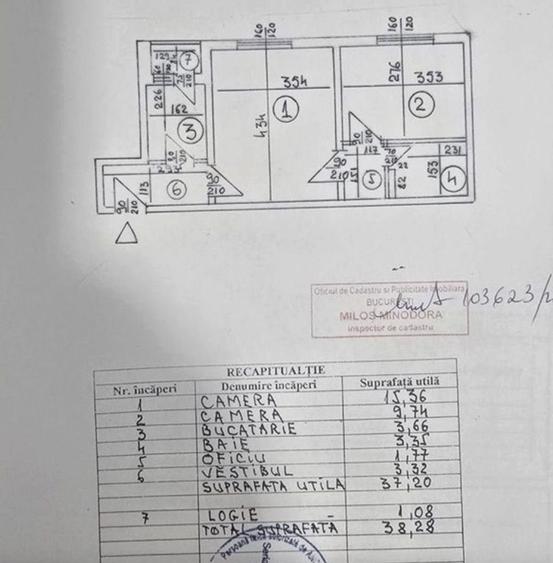 160
120
160
120
125
7
70
210
226
162
3
80
210
354
1
434
276
353
2
90
210
117
70
210
22
231
153
4
82
151
5
90
210
90
210
113
6
90
210
Oficiul de Cadastru si Publicitate Imobiliara
BUCUREȘTI
MILOS MINODORA
inspector de cadastru
103623/
RECAPITUALȚIE
Nr. încăperi Denumire încăperi Suprafață utilă
1 CAMERA 15,36
2 CAMERA 9,74
3 BUCATARIE 3,66
4 BAIE 3,35
5 OFICIU 1,77
6 VESTIBUL 3,32
SUPRAFATA UTILA 37,20
7 LOGIE 1,08
TOTAL SUPRAFATA 38,28
Persoană fizică autorizată de